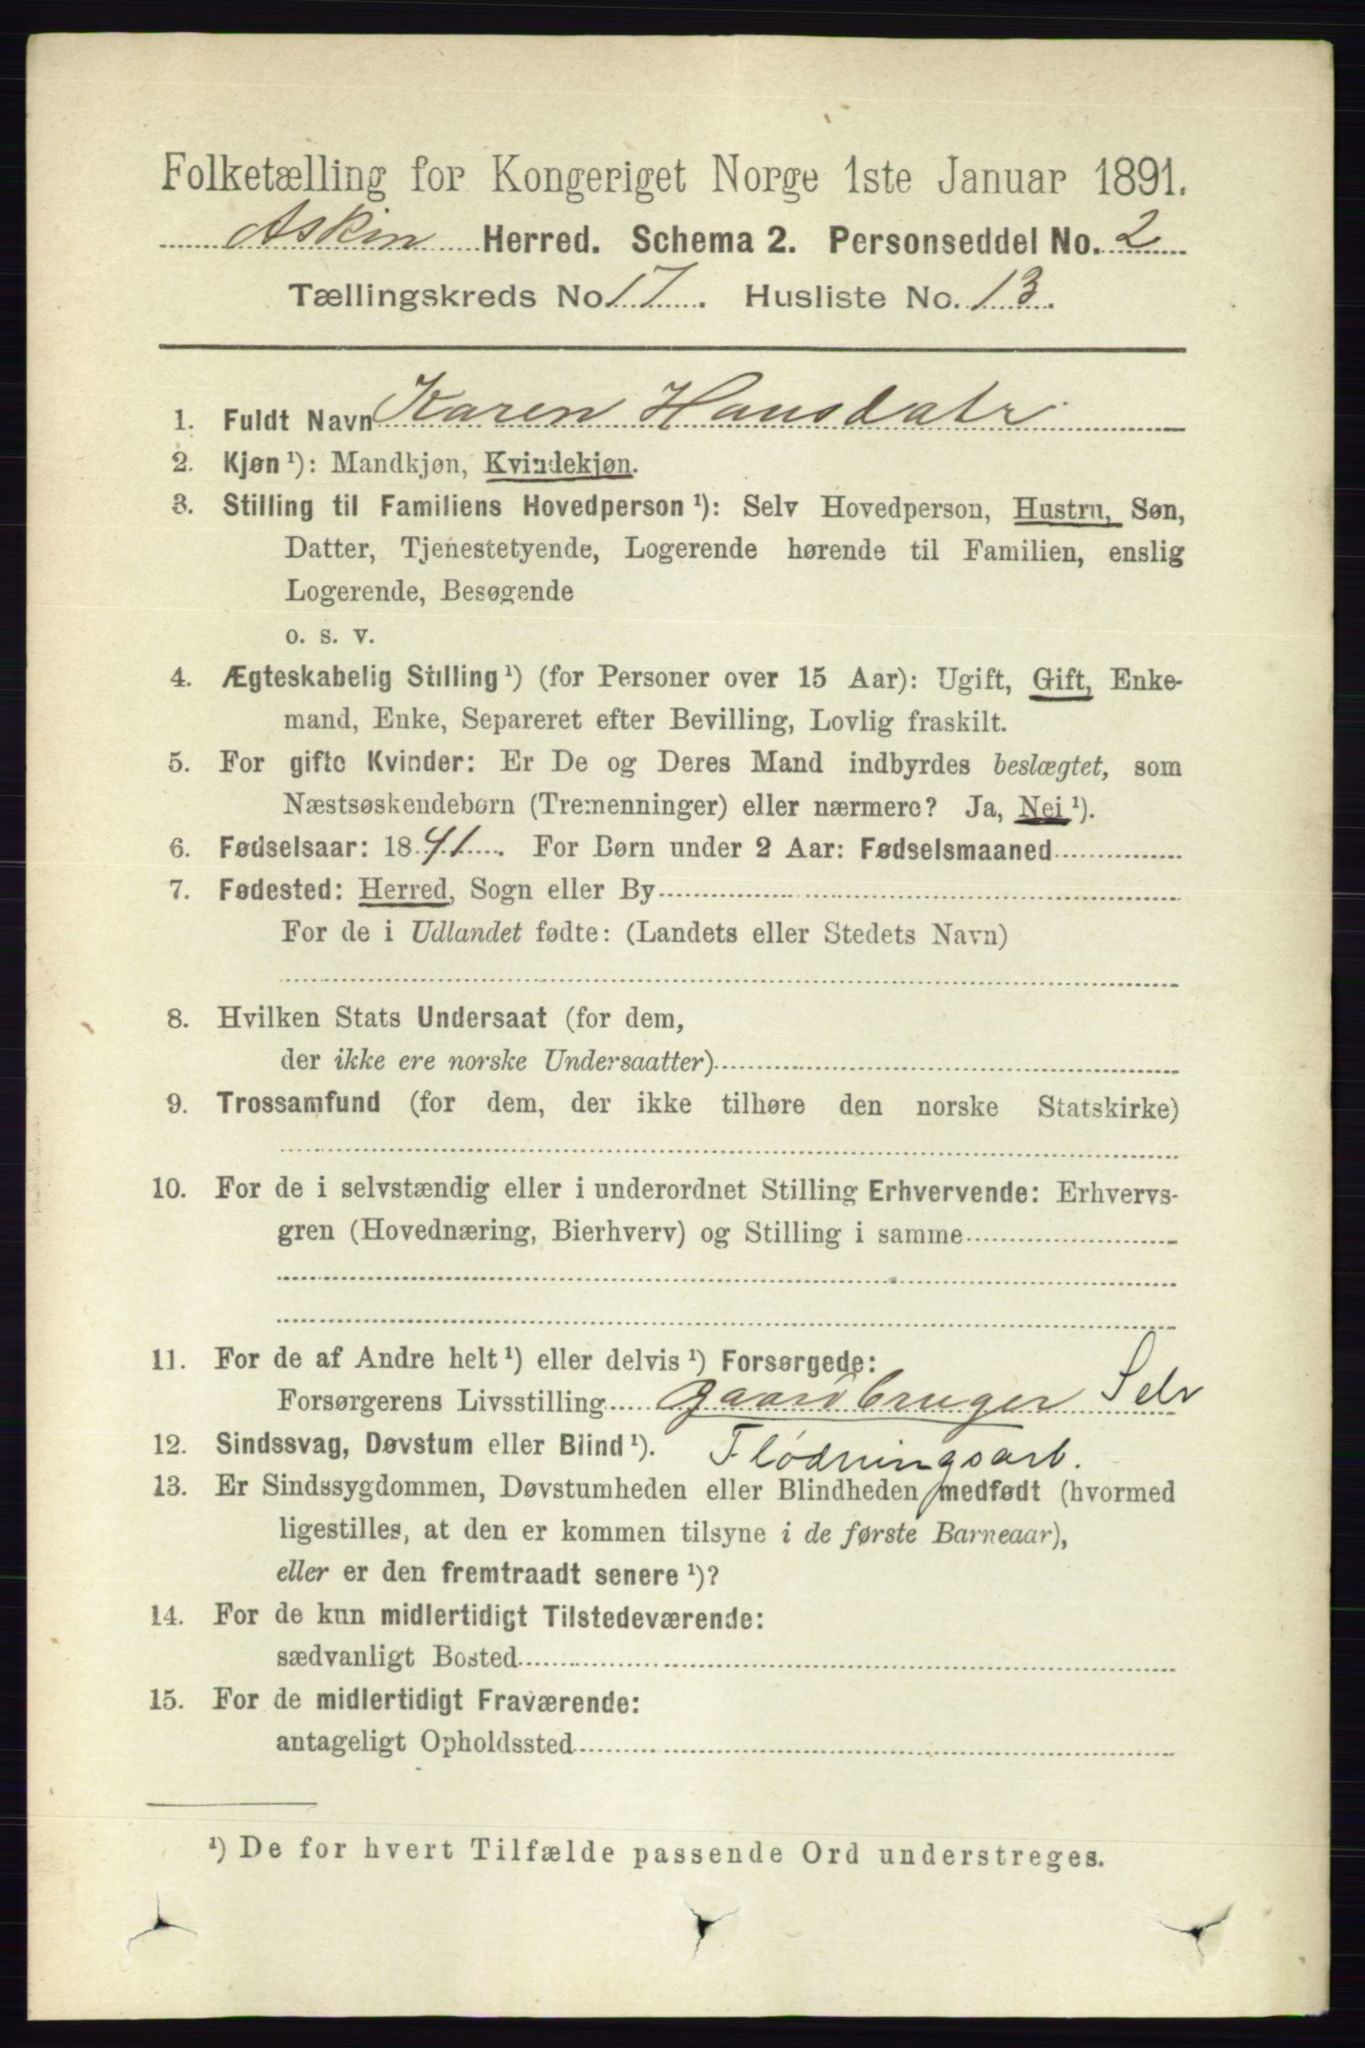 Folketælling for Kongeriget Norge 1ste Januar 1891.
Askim Herred. Schema 2. Personseddel No. 2
Tællingskreds No 17. Husliste No. 13.
1. Fuldt Navn Karen Hansdatr
2. Kjøn¹): Mandkjøn, Kvindekjøn.
3. Stilling til Familiens Hovedperson¹): Selv Hovedperson, Hustru, Søn,
Datter, Tjenestetyende, Logerende hørende til Familien, enslig
Logerende, Besøgende
o. s. v.
4. Ægteskabelig Stilling¹) (for Personer over 15 Aar): Ugift, Gift, Enke-
mand, Enke, Separeret efter Bevilling, Lovlig fraskilt.
5. For gifte Kvinder: Er De og Deres Mand indbyrdes beslægtet, som
Næstsøskendebørn (Tremenninger) eller nærmere? Ja, Nei¹).
6. Fødselsaar: 1841. For Børn under 2 Aar: Fødselsmaaned
7. Fødested: Herred, Sogn eller By
For de i Udlandet fødte: (Landets eller Stedets Navn)
8. Hvilken Stats Undersaat (for dem,
der ikke ere norske Undersaatter)
9. Trossamfund (for dem, der ikke tilhøre den norske Statskirke)
10. For de i selvstændig eller i underordnet Stilling Erhvervende: Erhvervs-
gren (Hovednæring, Bierhverv) og Stilling i samme
11. For de af Andre helt¹) eller delvis¹) Forsørgede:
Forsørgerens Livsstilling gaardbruger Selv
12. Sindssvag, Døvstum eller Blind¹). Flødningsarb.
13. Er Sindssygdommen, Døvstumheden eller Blindheden medfødt (hvormed
ligestilles, at den er kommen tilsyne i de første Barneaar),
eller er den fremtraadt senere¹)?
14. For de kun midlertidigt Tilstedeværende:
sædvanligt Bosted
15. For de midlertidigt Fraværende:
antageligt Opholdssted
¹) De for hvert Tilfælde passende Ord understreges.